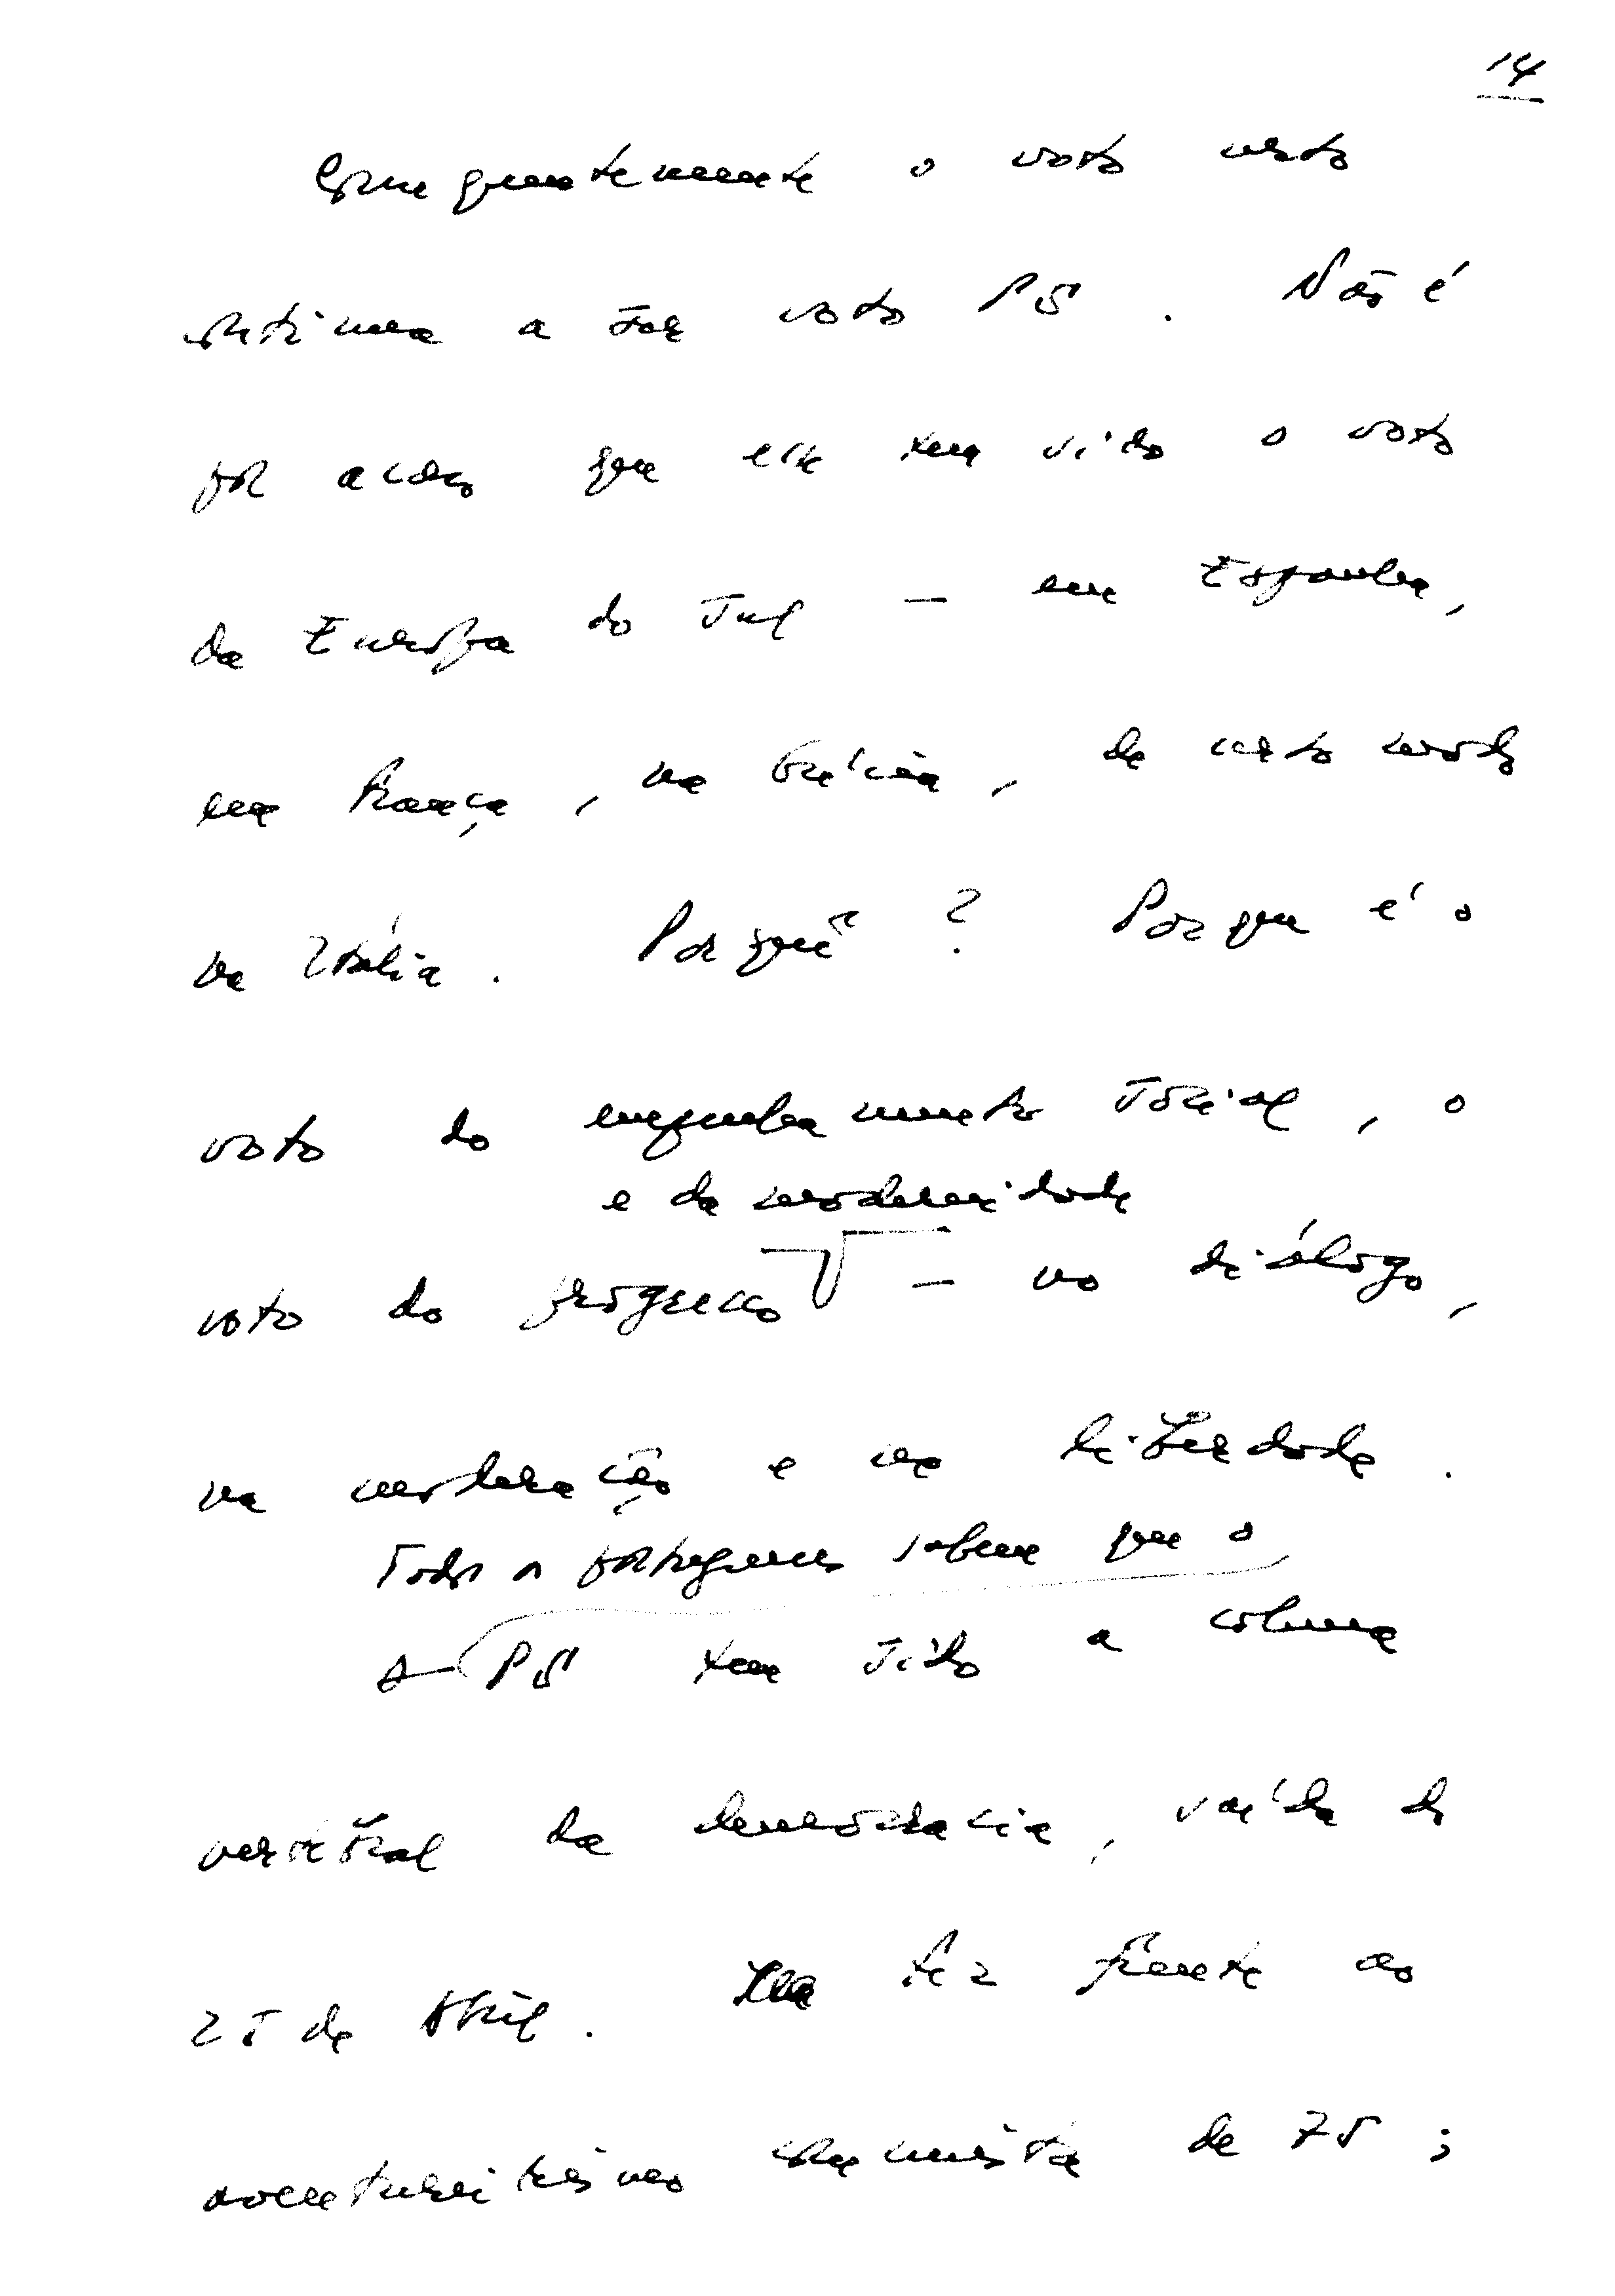 14
Consequentemente o voto certo
continua a ser voto PS. Não é
por acaso que ele tem sido o voto
da Europa do Sul — em Espanha,
em França, na Grécia, de certo modo
na Itália. Porquê? Porque é o
voto do empenhamento social, o
e da modernidade
voto do progresso — no diálogo,
na moderação e na liberdade.
Todos os portugueses sabem que o
O PS tem sido a coluna
vertebral da democracia, saída do
25 de Abril. fez frente ao
aventureirismo comunista de 75;